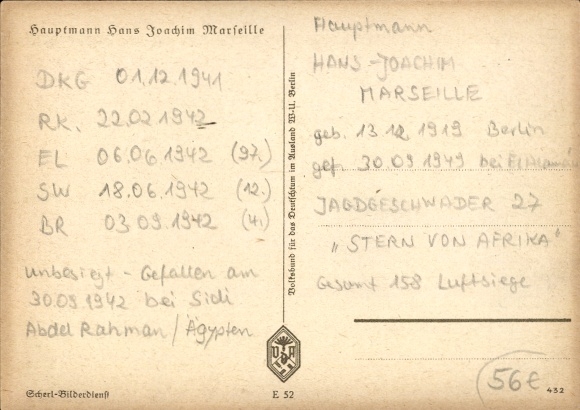 Hauptmann Hans Joachim Marseille
DKG 01.12.1941
RK. 22.02 1942
EL 06.06 1942 (97.)
SW 18.06 1942 (12.)
BR 03 09.1942 (4.)
unbesiegt - Gefallen am
30.09 1942 bei Sidi
Abdel Rahman / Ägypten
Scherl-Bilderdienst
Volksbund für das Deutschtum im Ausland W-U. Berlin
VDA
E 52
Hauptmann
HANS-JOACHIM
MARSEILLE
geb. 13 12 1919 Berlin
gef. 30.09 1949 bei El Alamein
JAGDGESCHWADER 27
„STERN VON AFRIKA"
Gesamt 158 Luftsiege
56€
432